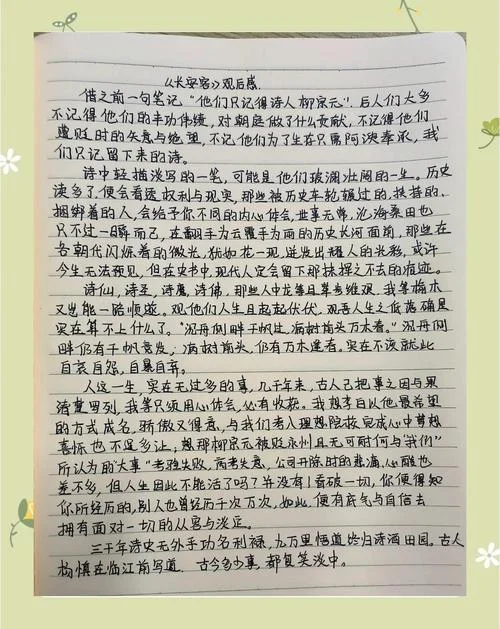 《长安客》观后感
借之前一句笔记,"他们只记得诗人柳宗元". 后人们大多
不记得他们的丰功伟绩,对朝庭做了什么贡献,不记得他们
遭贬时的失意与绝望,不记他们为了生存只是阿谀奉承,我
们只记留下来的诗。
诗中轻描淡写的一笔,可能是他们波澜壮阔的一生。历史
读多了,便会看透权利与现实,那些被历史车轮辗过的,挟持的、
捆绑着的人,会给予你不同的内心体会,世事无常,沧海桑田也
只不过一瞬而已,在翻手为云覆手为雨的历史长河面前,那些在
各朝代闪烁着的微光,犹如花一现,迸发出耀人的光彩,或许
今生无法预见,但在史书中,现代人定会留下那抹挥之不去的痕迹。
诗仙,诗圣,诗魔,诗佛,那些人中龙等且举步维艰,我等榆木
又岂能一路顺遂。观他们人生且起起伏伏,观吾人生之低落确是
实在算不上什么了。"沉舟侧畔千帆过,病树前头万木春。"沉舟侧
畔仍有千帆竞发;病树前头,仍有万木逢春。实在不该就此
自哀自怨,自暴自弃。
人这一生,实在无过多的事,几千年来,古人已把事之因与果
清楚罗列,我等只须用心体会,必有收获。我想李白以他最希望
的方式成名,骄傲又得意,与我们考入理想院校完成心中梦想
喜悦也不逞多让;想那柳宗元被贬永州且无可耐何与我们"
所认为的大事"考验失败,高考失意,公司开除时的悲痛,心酸也
差不多,但人生因此不能活了吗?并没有!看破一切,你便得知
你所经历的,别人也曾经历千次万次,如此,便有底气与自信去
拥有面对一切的从容与淡定。
三千年诗史无外乎功名利禄,九万里悟道终归诗酒田园。古人
杨慎在临江前写道 古今多少事,都付笑淡中。